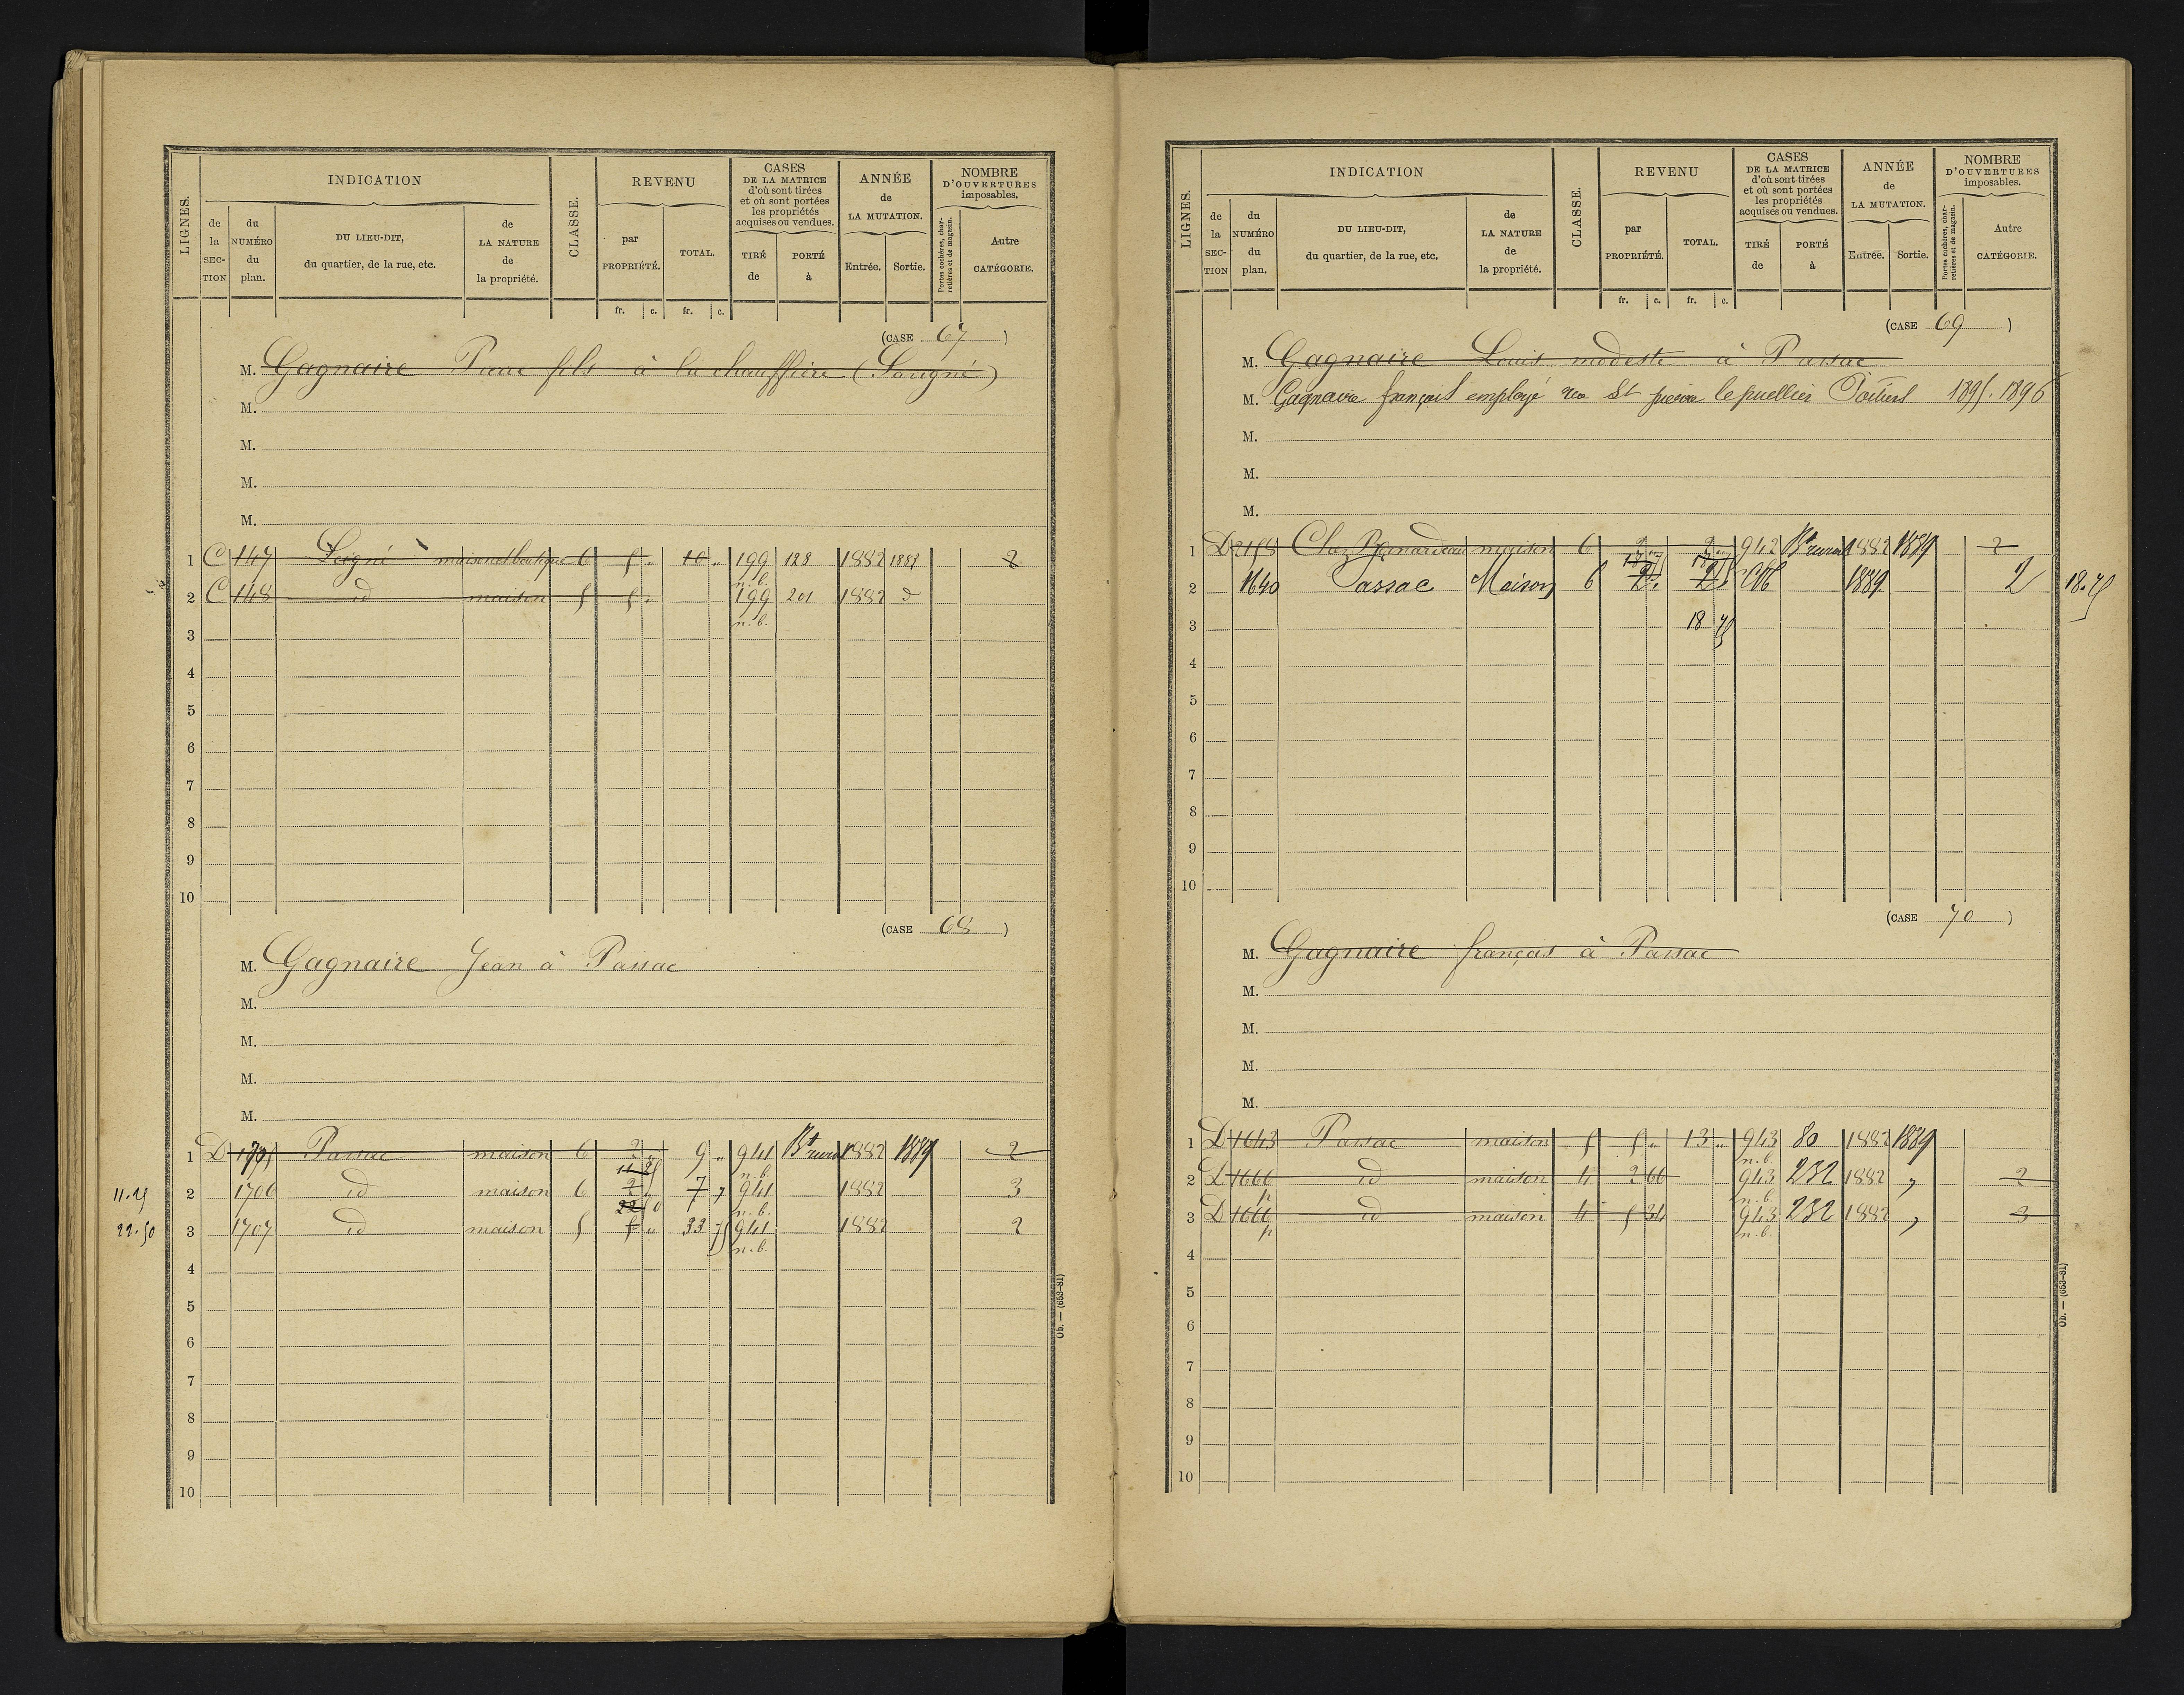 LIGNES. INDICATION CLASSE. REVENU CASES DE LA MATRICE d'où sont tirées et où sont portées les propriétés acquises ou vendues. ANNÉE de LA MUTATION. NOMBRE D'OUVERTURES imposables.
de la SECTION du NUMÉRO du plan. DU LIEU-DIT, du quartier, de la rue, etc. de LA NATURE de la propriété. par PROPRIÉTÉ. TOTAL. TIRÉ de PORTÉ à Entrée. Sortie. Portes cochères, charretières et de magasin. Autre CATÉGORIE.
fr. c. fr. c.
(CASE 67)
M. Gagnaire fils à la chauffière (Savigné)
M.
M.
M.
M.
1 C 147 maison et boutique 6 5 „ 10 „ 199 n.b. 128 1882 1889 2
2 C 148 id maison 5 5 „ 199 n.b. 201 1882 d
3
4
5
6
7
8
9
10
(CASE 68)
M. Gagnaire Jean à Passac
M.
M.
M.
M.
1 D 1705 Passac maison 6 2 „ 9 „ 941 n.b. Bt rural 1882 1889 2
11.25 2 1706 id maison 6 11 25 2 „ 7 „ 941 n.b. 1882 3
22.50 3 1707 id maison 5 22 50 5 „ 33 75 941 n.b. 1882 2
4
5
6
7
8
9
10
Ob. — (653-81)
LIGNES. INDICATION CLASSE. REVENU CASES DE LA MATRICE d'où sont tirées et où sont portées les propriétés acquises ou vendues. ANNÉE de LA MUTATION. NOMBRE D'OUVERTURES imposables.
de la SECTION du NUMÉRO du plan. DU LIEU-DIT, du quartier, de la rue, etc. de LA NATURE de la propriété. par PROPRIÉTÉ. TOTAL. TIRÉ de PORTÉ à Entrée. Sortie. Portes cochères, charretières et de magasin. Autre CATÉGORIE.
fr. c. fr. c.
(CASE 69)
M. Gagnaire Louis modeste à Passac
M. Gagnaire françois employé rue St pierre le puellier Poitiers 1895.1896
M.
M.
M.
1 D 2158 Chez Bernardeau maison 6 2 „ 2 „ 942 Bt rural 1882 1889 2
2 1640 Passac Maison 6 2 „ 2 „ 1889 2 18.75
3 18 75
4
5
6
7
8
9
10
(CASE 70)
M. Gagnaire françois à Passac
M.
M.
M.
M.
1 D 1643 Passac maison 5 5 „ 13 „ 943 n.b. 80 1882 1889
2 D 1666 p id maison 4 2 66 943 n.b. 232 1882 „ 2
3 D 1666 p id maison 4 5 34 943 n.b. 232 1882 „ 3
4
5
6
7
8
9
10
Ob. — (653-81)